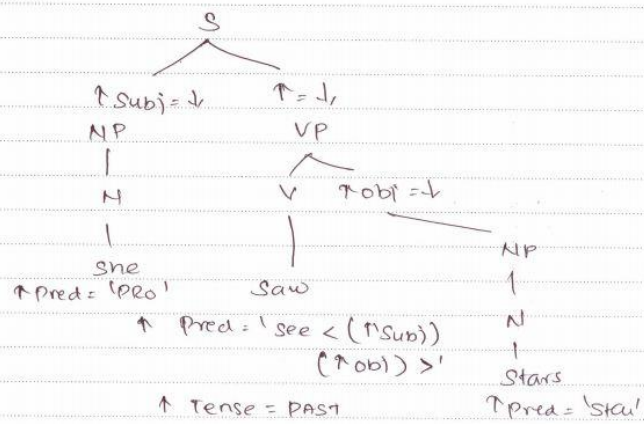 S
↑ Subj = ↓ ↑ = ↓
NP VP
N V ↑ obj = ↓
She Saw NP
↑ Pred = 'PRO' N
↑ Pred = 'See < (↑ Subj)
(↑ obj) >' Stars
↑ Tense = PAST ↑ pred = 'Star'